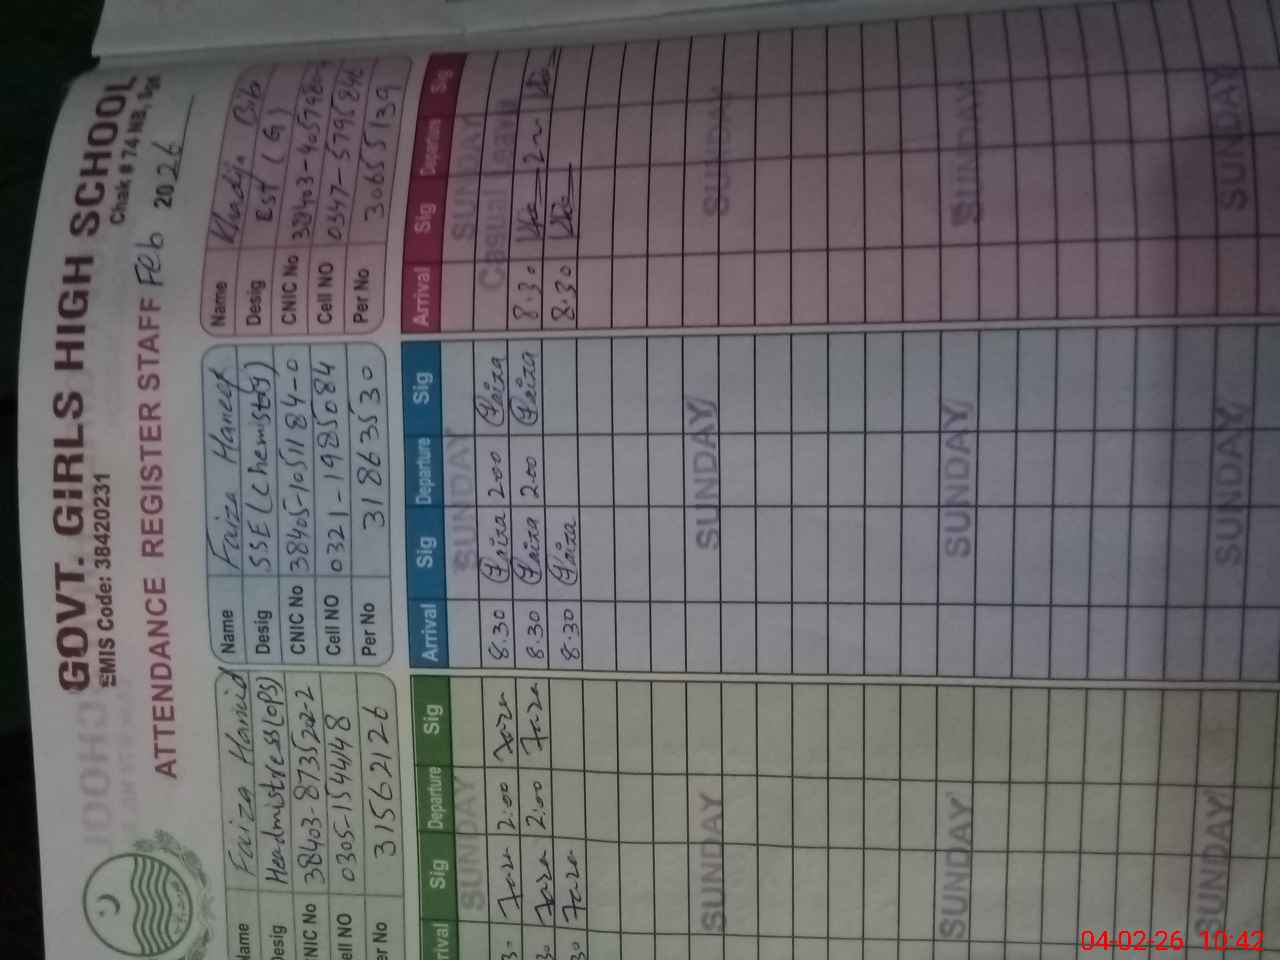 GOVT. GIRLS HIGH SCHOOL
EMIS Code: 38420231
Chak # 74 NB, Sgd
ATTENDANCE REGISTER STAFF Feb 2026
Name Faiza Hamid
Desig Headmistress (OPS)
CNIC No 38403-8735202-2
Cell NO 0305-1544148
Per No 31562126
Name Faiza Haneef
Desig SSE (Chemistry)
CNIC No 38405-1051184-0
Cell NO 0321-1985084
Per No 31863530
Name Khadija Bibi
Desig Est (G)
CNIC No
Cell NO 0347-5795846
Per No 30655139
Arrival Sig Departure Sig Arrival Sig Departure Sig Arrival Sig Departure Sig
SUNDAY SUNDAY SUNDAY
2:00 8.30 Faiza 200 Faiza Casual Leave
2:00 8.30 Faiza 200 Faiza 8.30
8.30 Faiza 8.30
SUNDAY SUNDAY SUNDAY
SUNDAY SUNDAY SUNDAY
SUNDAY SUNDAY SUNDAY
04-02-26 10:42